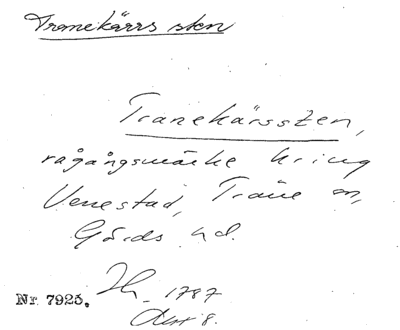 Tranekärrs sten
Tranekärssten,
rågångsmärke kring
Venestad, Träne sn,
Gärds hd.
1787
Nr 7925.
Akt 8.